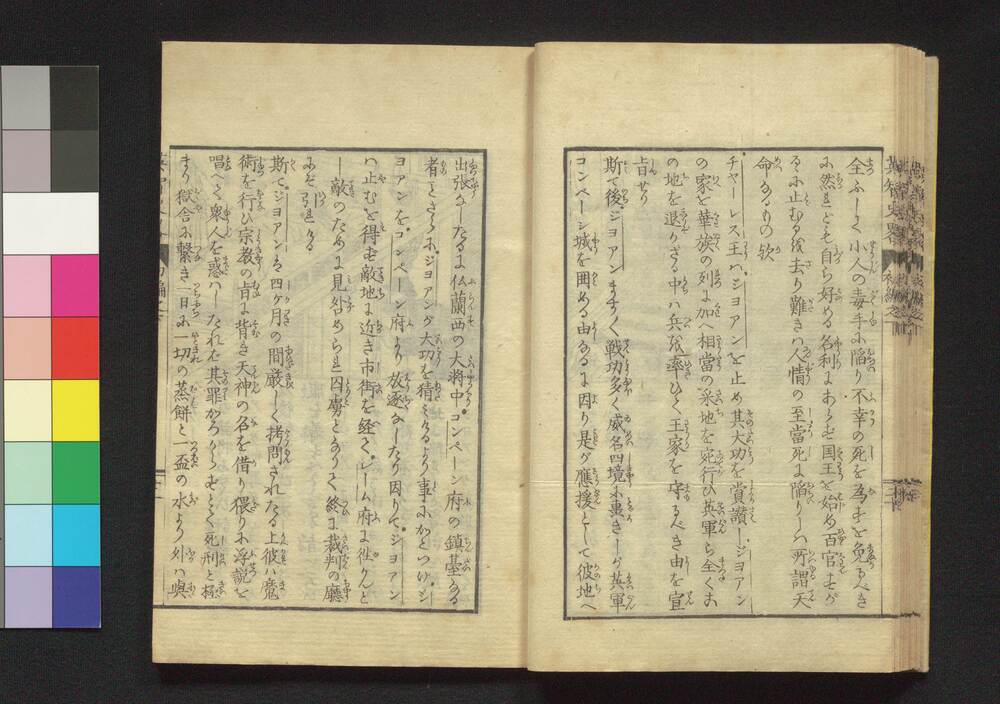 全ふしく小人の毒手に陥り不幸の死を為すを免るべき
に然れども自ら好める名利にあらず国王を始め百官すが
るに止むる後去り難きハ人情の至當死に陥りしハ所謂天
命なるもの歟
チャーレス王ハジヨアンを止め其大功を賞讃しジヨアン
の家を華族の列に加へ相當の采地を宛行ひ英軍ら全く
の地を退りざる中ハ兵を率ひて王家を守るべき由を宣
旨せり
斯て後ジヨアンますく戦功多く威名四境に畫きしが英軍
コンペーン城を囲める由なるに因り是が應援として彼地へ
出張なしたるに仏蘭西の大將中コンペーン府の鎮臺なる
者ときらにジヨアンが大功を猜ミけるより事にかこつけジ
ヨアンをコンペーン府より放逐なしたり因りてジヨアン
ハ止むを得ず敵地に近き市街を経てレーム府に往かんと
し敵のために見外められ囚虜となりて終に裁判の廳
にぞ引れける
斯てジヨアンハ四ケ月の間嚴しく拷問されたる上彼ハ魔
術を行ひ宗教の旨に背き天神の名を借り猥りに浮説を
唱へて衆人を惑ハしたれバ其罪かろからずとて死刑と極
まり獄舎に繋き一日に一切の蒸餅と一盃の水より外ハ與